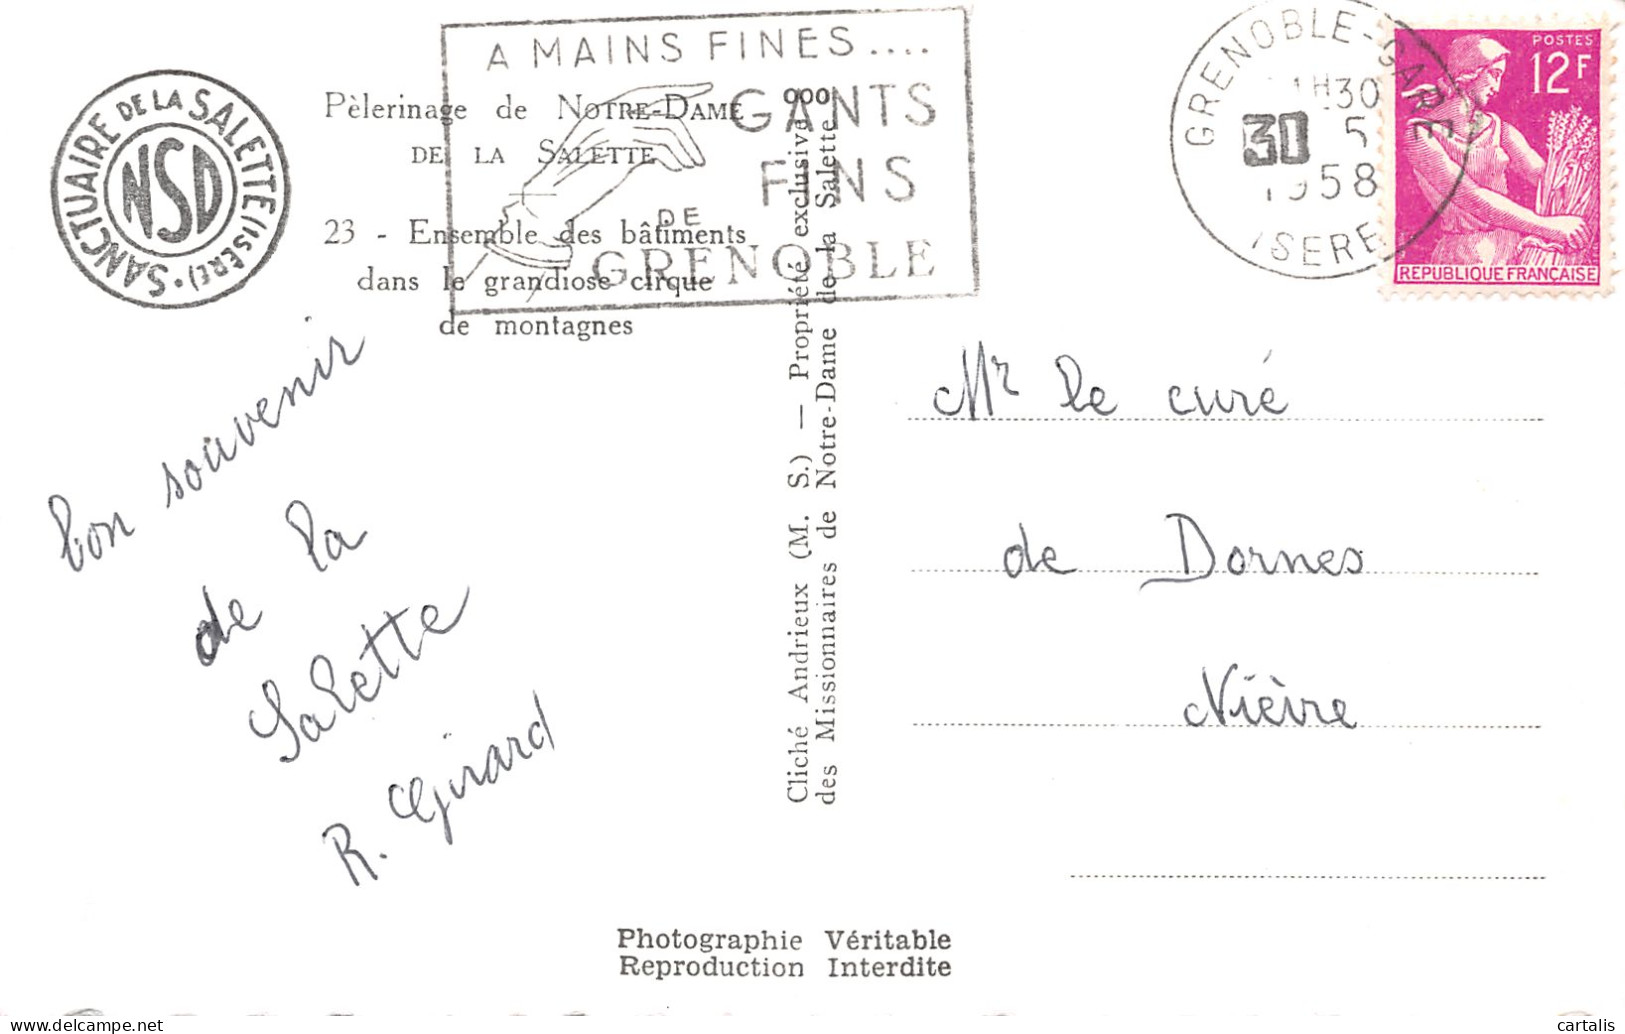 SANCTUAIRE DE LA SALETTE (ISÈRE) •
NSD
Pèlerinage de NOTRE-DAME
DE LA SALETTE
23 - Ensemble des bâtiments
dans le grandiose cirque
de montagnes
A MAINS FINES....
GANTS
FINS
DE
GRENOBLE
GRENOBLE-GARE
H30
30 5
1958
ISERE
POSTES
12F
REPUBLIQUE FRANÇAISE
bon souvenir
de la
Salette
R. Girard
Cliché Andrieux (M. S.) — Propriété exclusive
des Missionnaires de Notre-Dame de la Salette
Mr le curé
de Dornes
Nièvre
Photographie Véritable
Reproduction Interdite
cartalis